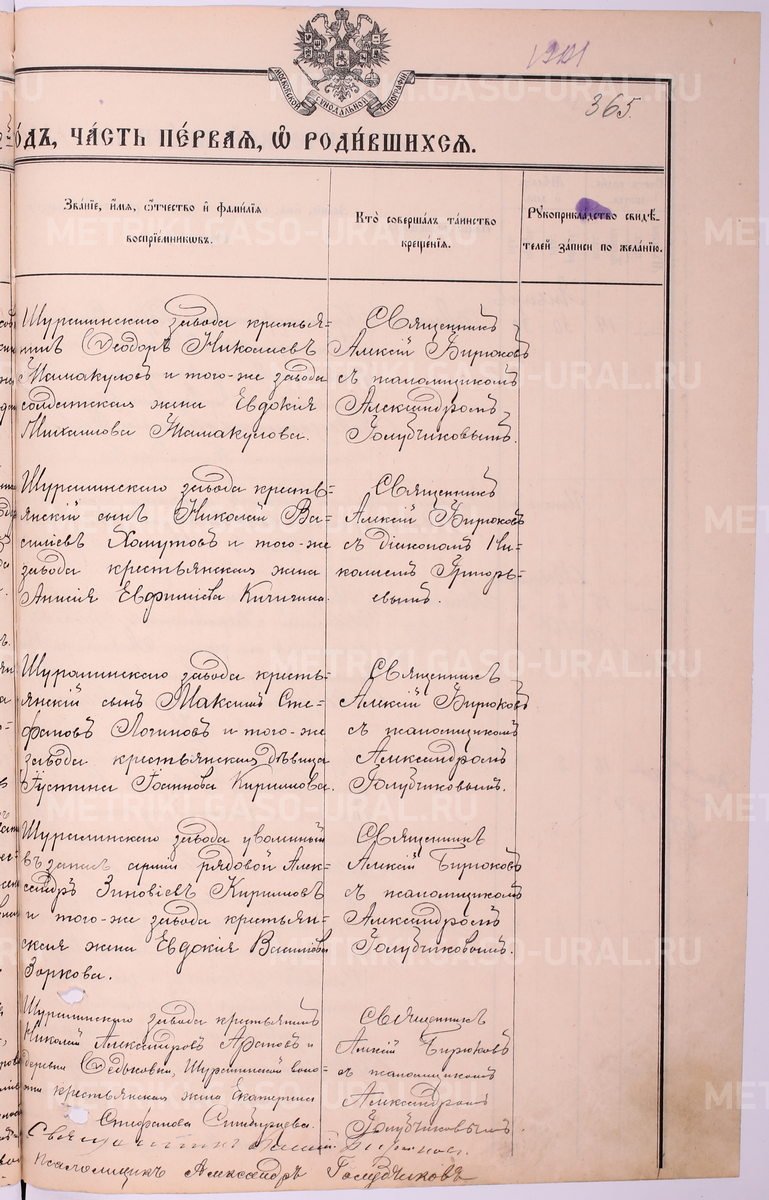 1901
365.
МОСКОВСКОЙ СѴНОДАЛЬНОЙ ТИПОГРАФІИ
ѻ́дъ, ча́сть пе́рваѧ, ѽ роди́вшихсѧ.
Зва́ніе, и҆́мѧ, ѻ҆́тчество и҆ фами́лїѧ
воспрїе́мникѡвъ.
Кто̀ соверша́лъ та́инство
креще́нїѧ.
Рꙋкоприкла́дство свидѣ́-
телей за́писи по жела́нїю.
Шуралинскаго завода крестья-
нинъ Ѳеодоръ Николаевъ
Мамакуловъ и того-же завода
солдатская жена Евдокія
Михаилова Мамакулова.
Священникъ
Алексій Бирюковъ
съ псаломщикомъ
Александромъ
Голубчиковымъ.
Шуралинскаго завода кресть-
янскій сынъ Николай Ва-
силіевъ Хомутовъ и того-же
завода крестьянская жена
Анисія Евфиміева Кичигина.
Священникъ
Алексій Бирюковъ
съ діакономъ Ни-
колаемъ Григорь-
евымъ.
Шуралинскаго завода кресть-
янскій сынъ Максимъ Сте-
фановъ Логиновъ и того-же
завода крестьянская дѣвица
Іустина Іоаннова Кириллова.
Священникъ
Алексій Бирюковъ
съ псаломщикомъ
Александромъ
Голубчиковымъ.
Шуралинскаго завода уволенный
въ запасъ арміи рядовой Алек-
сандръ Зиновіевъ Кирилловъ
и того-же завода крестьян-
ская жена Евдокія Васильева
Зоркова.
Священникъ
Алексій Бирюковъ
съ псаломщикомъ
Александромъ
Голубчиковымъ.
Шуралинскаго завода крестьянинъ
Николай Александровъ Араповъ и
деревни Ѳедьковки, Шуралинской воло-
сти крестьянская жена Екатерина
Стефанова
Священникъ
Алексій Бирюковъ
съ псаломщикомъ
Александромъ
Голубчиковымъ.
Священникъ Алексій Бирюковъ.
Псаломщикъ Александръ Голубчиковъ
METRIKI.GASO-URAL.RU